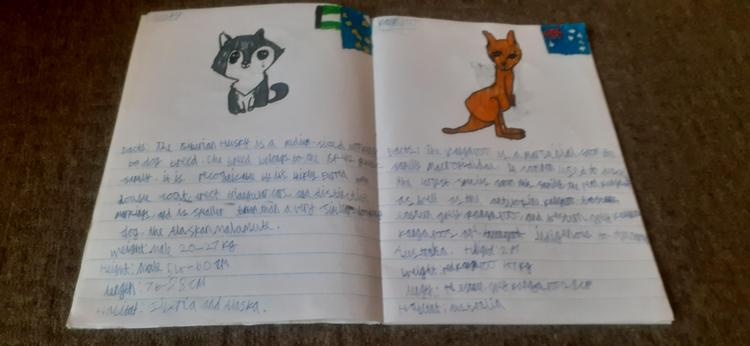 Husky
facts: The Siberian Husky is a medium-sized working
be dog breed. The breed belongs to the Spitz genetic
family. it is recognizable by its thickly furred
double coat, erect triangular ears and distinctive
markings and is smaller than a very similar-looking
dog, the Alaskan malamute.
weight: male 20-27 kg
Height: male 54-60 cm
length:
Habitat: Siberia and Alaska.
Kangaroo
facts: The kangaroo is a marsupial from the
family macropodidae. In common used to describe
the largest species from this family the red kangaroo
as well as the antilopine
eastern grey kangaroo and western grey kangaroo
kangaroos are indigenous to
Australia. Height: 2M
weight: kangaroo kg
length: the eastern grey kangaroo
Habitat: Australia